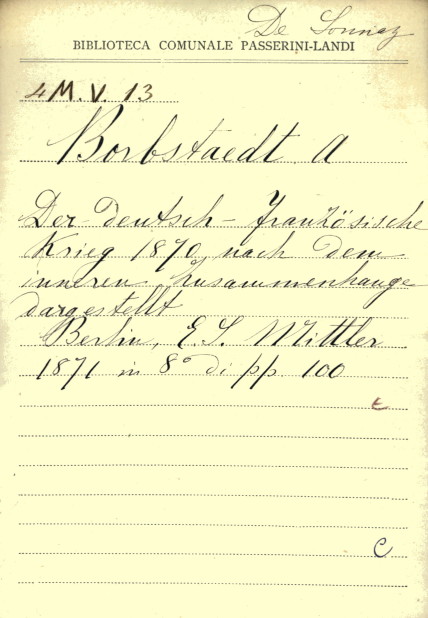 De Sonnaz
BIBLIOTECA COMUNALE PASSERINI-LANDI
4 M. V. 13
Borbstaedt A
Der deutsch-französische
Krieg 1870, nach dem
inneren Zusammenhange
dargestellt
Berlin, E. S. Mittler
1871 in 8° di pp. 100
t
C